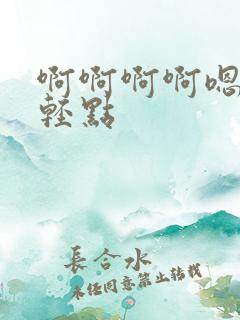 啊啊啊啊嗯
輕點
長合水
未經同意禁止轉載